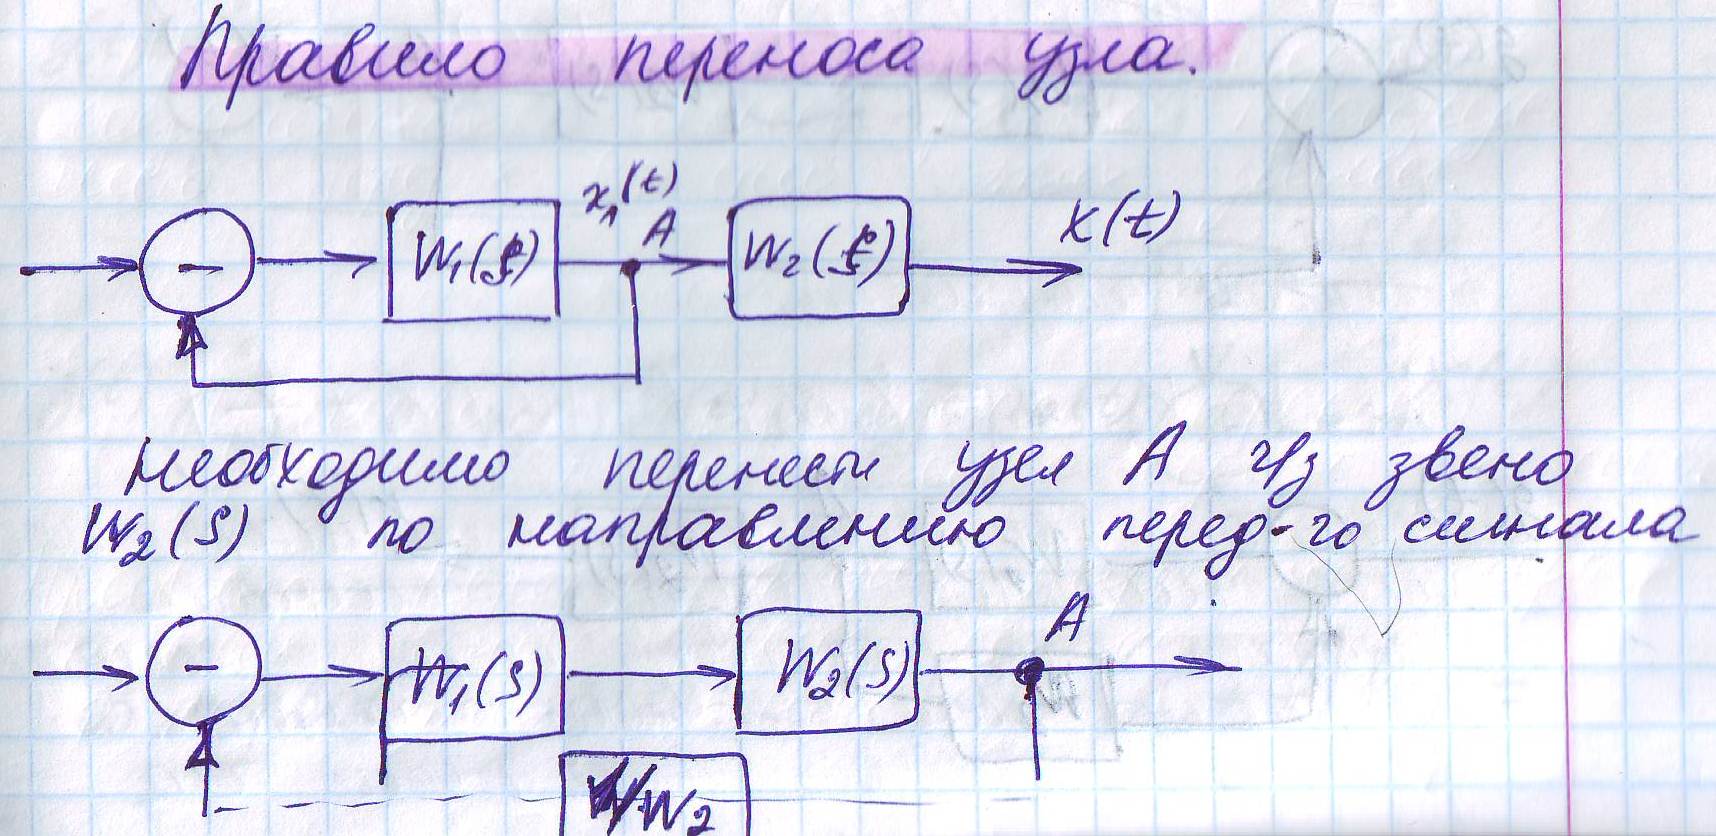 Правило переноса узла.
x₁(t)
A
W₁(s)
W₂(s)
x(t)
Необходимо перенести узел А ч/з звено
W₂(s) по направлению перед-го сигнала
A
W₁(s)
W₂(s)
1/W₂